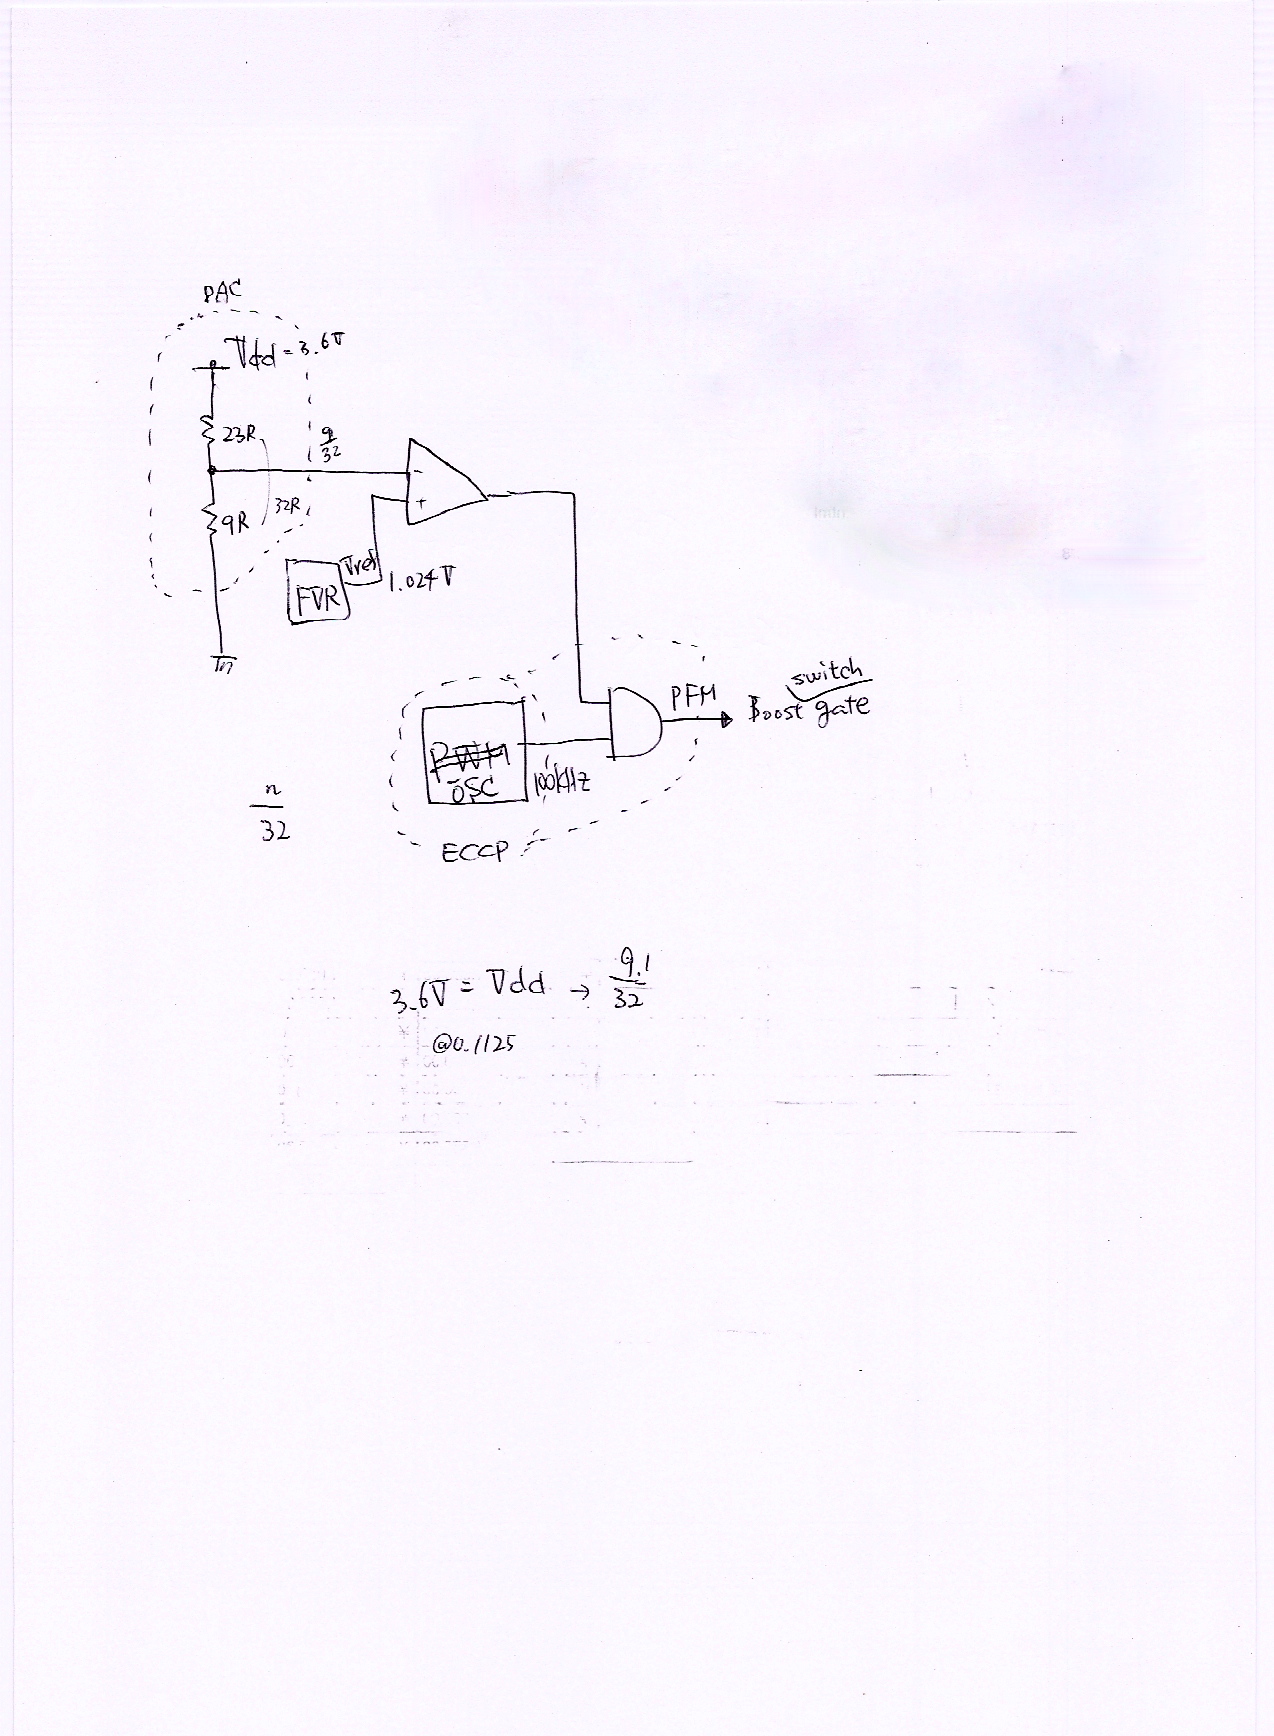 DAC
Vdd = 3.6V
23R
9
32
32R
9R
-
+
Vref
FVR
1.024V
switch
PFM
Boost gate
PWM
OSC
100kHz
n
32
ECCP
3.6V = Vdd → 9.1
32
@0.1125